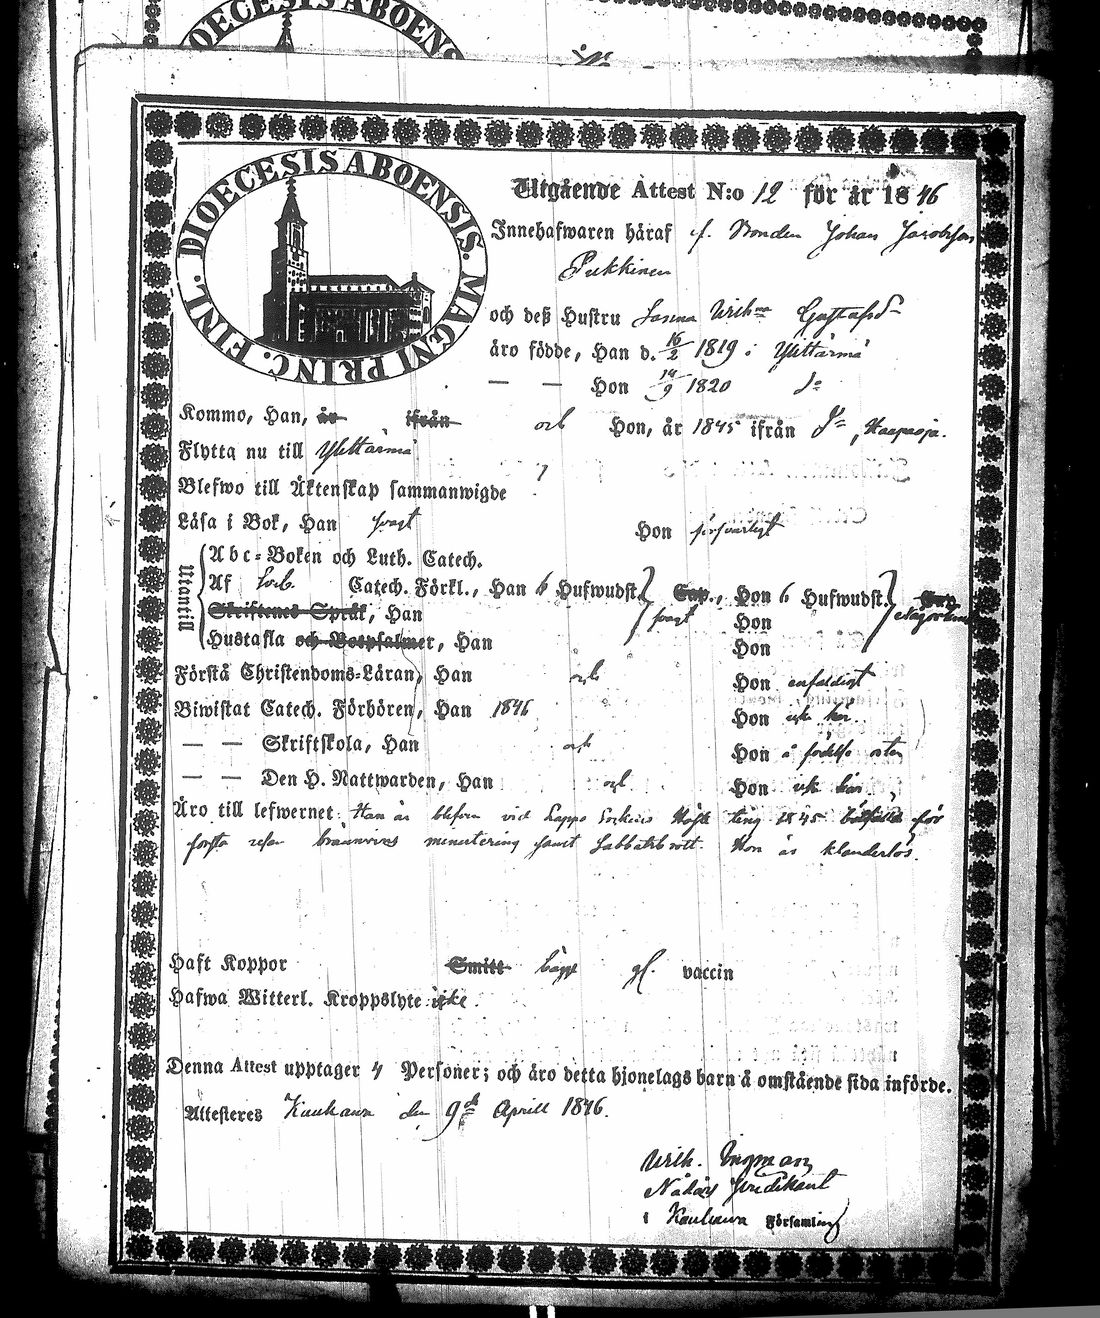 DIOECESIS ABOENSIS. MAGNI PRINC. FINL.
Utgående Attest N:o 12 för år 1846
Innehafwaren häraf f. Bonden Johan Jacobsson
Pukkinen
och deß Hustru Sanna Wilh:na Gustafsd:r
äro födde, Han d. 16/2 1819 i Ylihärmä
— — Hon 14/9 1820 d:o
Kommo, Han, år ifrån och Hon, år 1845 ifrån d:o, Haapoja.
Flytta nu till Ylihärmä
Blefwo till Äktenskap sammanwigde
Läsa i Bok, Han svagt Hon försvarligt
Utantill
Abc-Boken och Luth. Catech.
Af Sveb. Catech. Förkl., Han 6 Hufwudst. Cap., Hon 6 Hufwudst. Cap.
Skriftenes Språk, Han svagt Hon någorlunda
Hustafla och Botpsalmer, Han Hon
Förstå Christendoms-Läran, Han och Hon enfaldigt
Biwistat Catech. Förhören, Han 1846 Hon ick här.
— — Skriftskola, Han och Hon å födelse orten
— — Den H. Nattwarden, Han och Hon ick här
Äro till lefwernet: Han är blefven vid Lappo Sockens Höste ting 1845 bötfälld för
första resan bränvins minutering samt Sabbatsbrott. Hon är klanderlös.
Haft Koppor Smitt bägge gl. vaccin
Hafwa Witterl. Kroppslyte icke
Denna Attest upptager 4 Personer; och äro detta hjonelags barn å omstående sida införde.
Attesteres Kauhava den 9:de Aprill 1846.
Wilh. Ingman
Nådårs Predikant
i Kauhava Församling